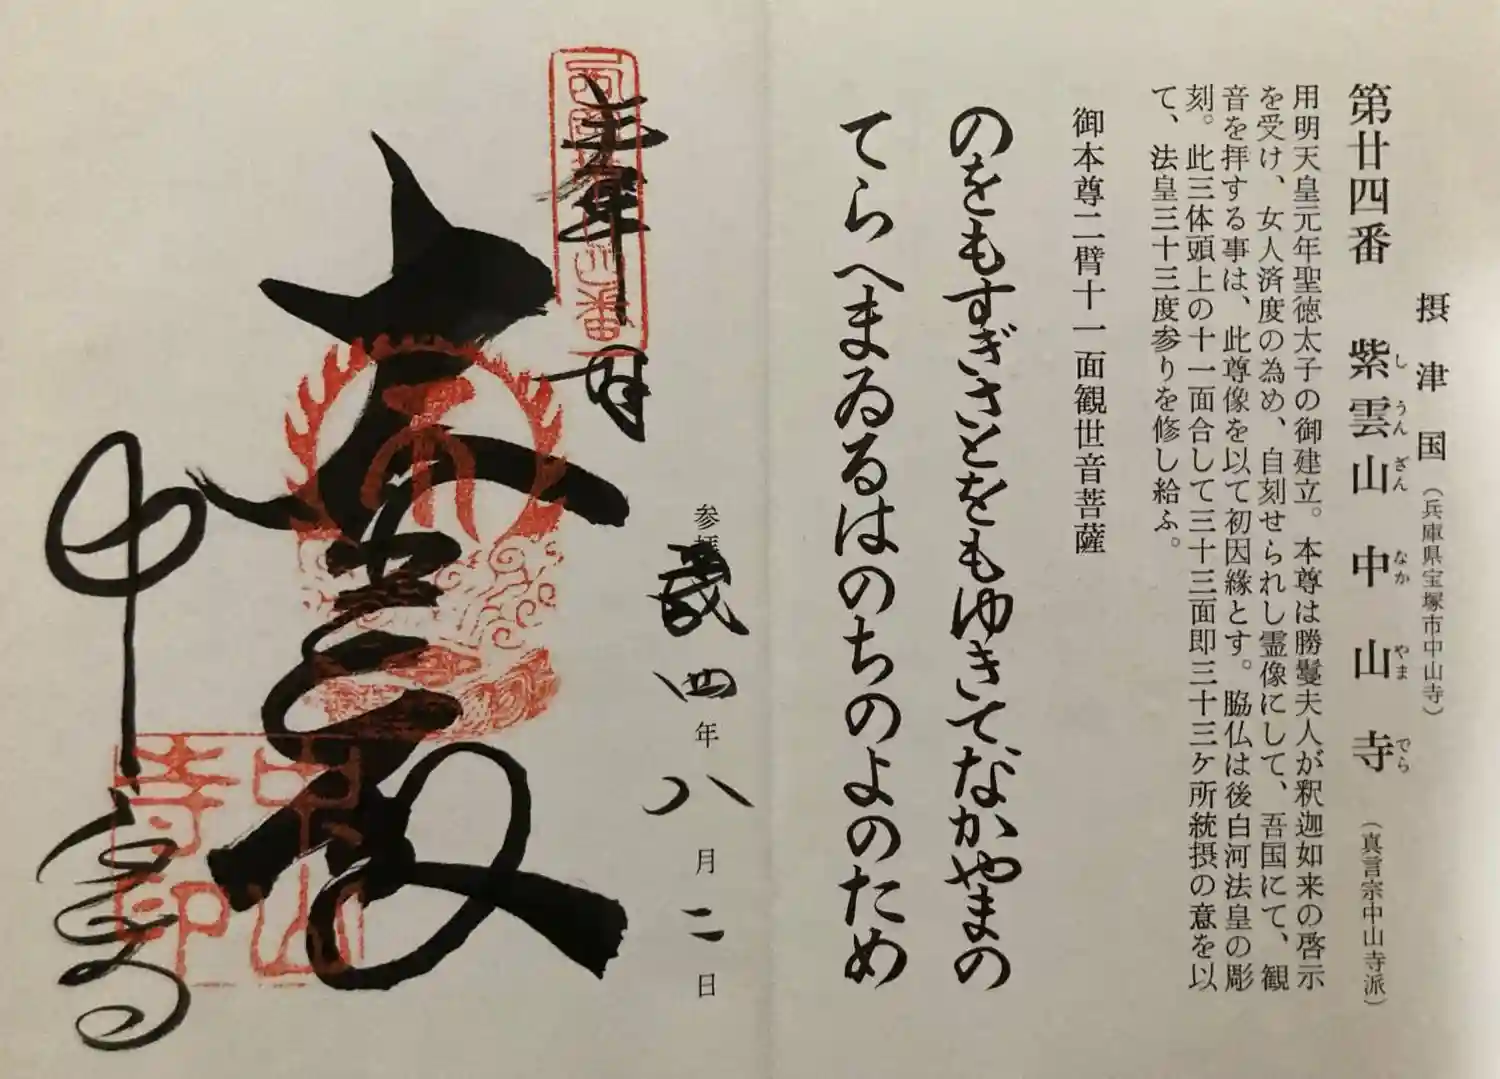 摂津国（兵庫県宝塚市中山寺）
第廿四番 紫雲山 中山寺（真言宗中山寺派）
し うん ざん なか やま でら
用明天皇元年聖徳太子の御建立。本尊は勝鬘夫人が釈迦如来の啓示
を受け、女人済度の為め、自刻せられし霊像にして、吾国にて、観
音を拝する事は、此尊像を以て初因縁とす。脇仏は後白河法皇の彫
刻。此三体頭上の十一面合して三十三面即三十三ケ所統摂の意を以
て、法皇三十三度参りを修し給ふ。
御本尊二臂十一面観世音菩薩
のをもすぎさとをもゆきてなかやまの
てらへまゐるはのちのよのため
参拝 四年八月二日
奉拝
大悲殿
中山寺
中山寺印